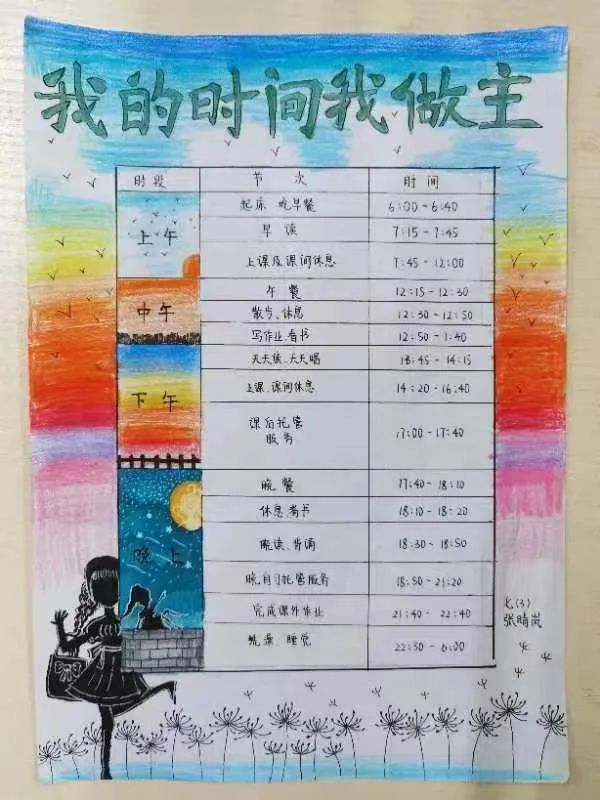 我的时间我做主
时段 节次 时间
上午
起床 吃早餐 6:00-6:40
早读 7:15-7:45
上课及课间休息 7:45-12:00
中午
午餐 12:15-12:30
散步、休息 12:30-12:50
写作业、看书 12:50-1:40
下午
天天练、天天唱 18:45-14:15
上课、课间休息 14:20-16:40
课后托管
服务 17:00-17:40
晚上
晚餐 17:40-18:10
休息、看书 18:10-18:20
晚读、背诵 18:30-18:50
晚自习托管服务 18:50-21:20
完成课外作业 21:40-22:40
洗澡 睡觉 22:50-6:00
七(3)
张晴岚